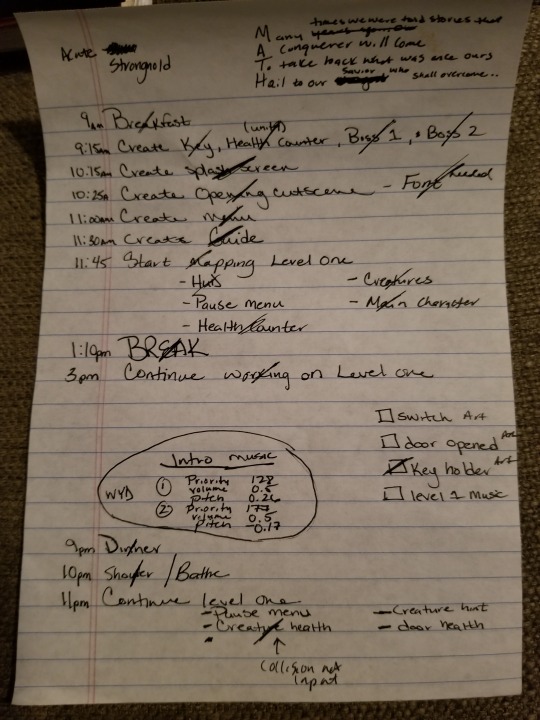 Acute
Stronghold
Many times we were told stories that
A Conquerer will come
To take back what was once ours
Hail to our savior who shall overcome..
9am Breakfast
(units)
9:15am Create Key, Health Counter, Boss 1, Boss 2
10:15am Create splash screen
10:25a Create Opening cutscene - Font needed
11:00am Create menu
11:30am Create Guide
11:45 Start Mapping Level One
- Hub - Creatures
- Pause menu - Main character
- Health Counter
1:10pm BREAK
3pm Continue working on Level one
switch Art
door opened Art
Key holder Art
level 1 Music
Intro music
WYD
1 Priority 128
volume 0.5
pitch 0.26
2 Priority 177
volume 0.5
pitch -0.17
9pm Dinner
10pm Shower / Bathe
11pm Continue level one
- Pause menu - Creature hunt
- Creature health - door health
Collision not
input